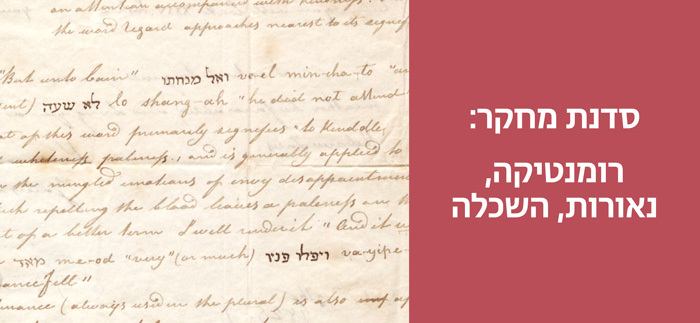 an attention accompanied with kindness.
the word regard approaches nearest to its signif
"But unto Cain" ואל מנחתו ve-el min-cha-to "an
ent) לא שעה lo shang-ah "he did not attend"
t of this word primarily signifies "to kindle,
whiteness paleness, and is generally applied to
the mingled emotions of envy disappointmen
ch repelling the blood leaves a paleness on th
t of a better term I well render it "And it w
מאד me-od "very" (or much) ויפלו פניו va-yipe-
ance fell"
nance (always used in the plural) is also ap
סדנת מחקר:
רומנטיקה,
נאורות, השכלה